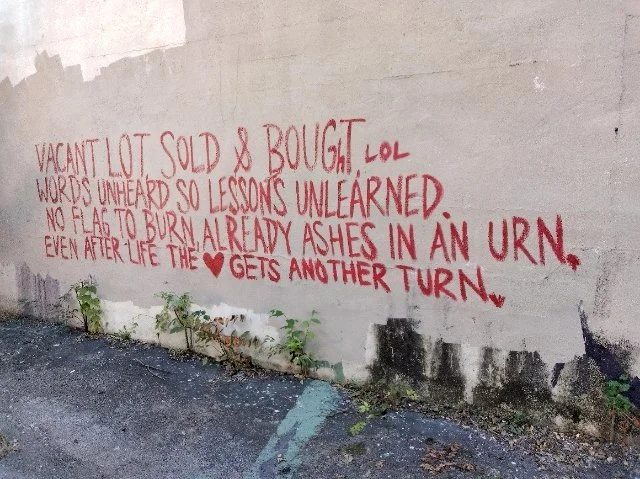 VACANT LOT, SOLD & BOUGhT. LOL
WORDS UNHEARD SO LESSONS UNLEARNED.
NO FLAG TO BURN, ALREADY ASHES IN AN URN.
EVEN AFTER LIFE THE ♥ GETS ANOTHER TURN.